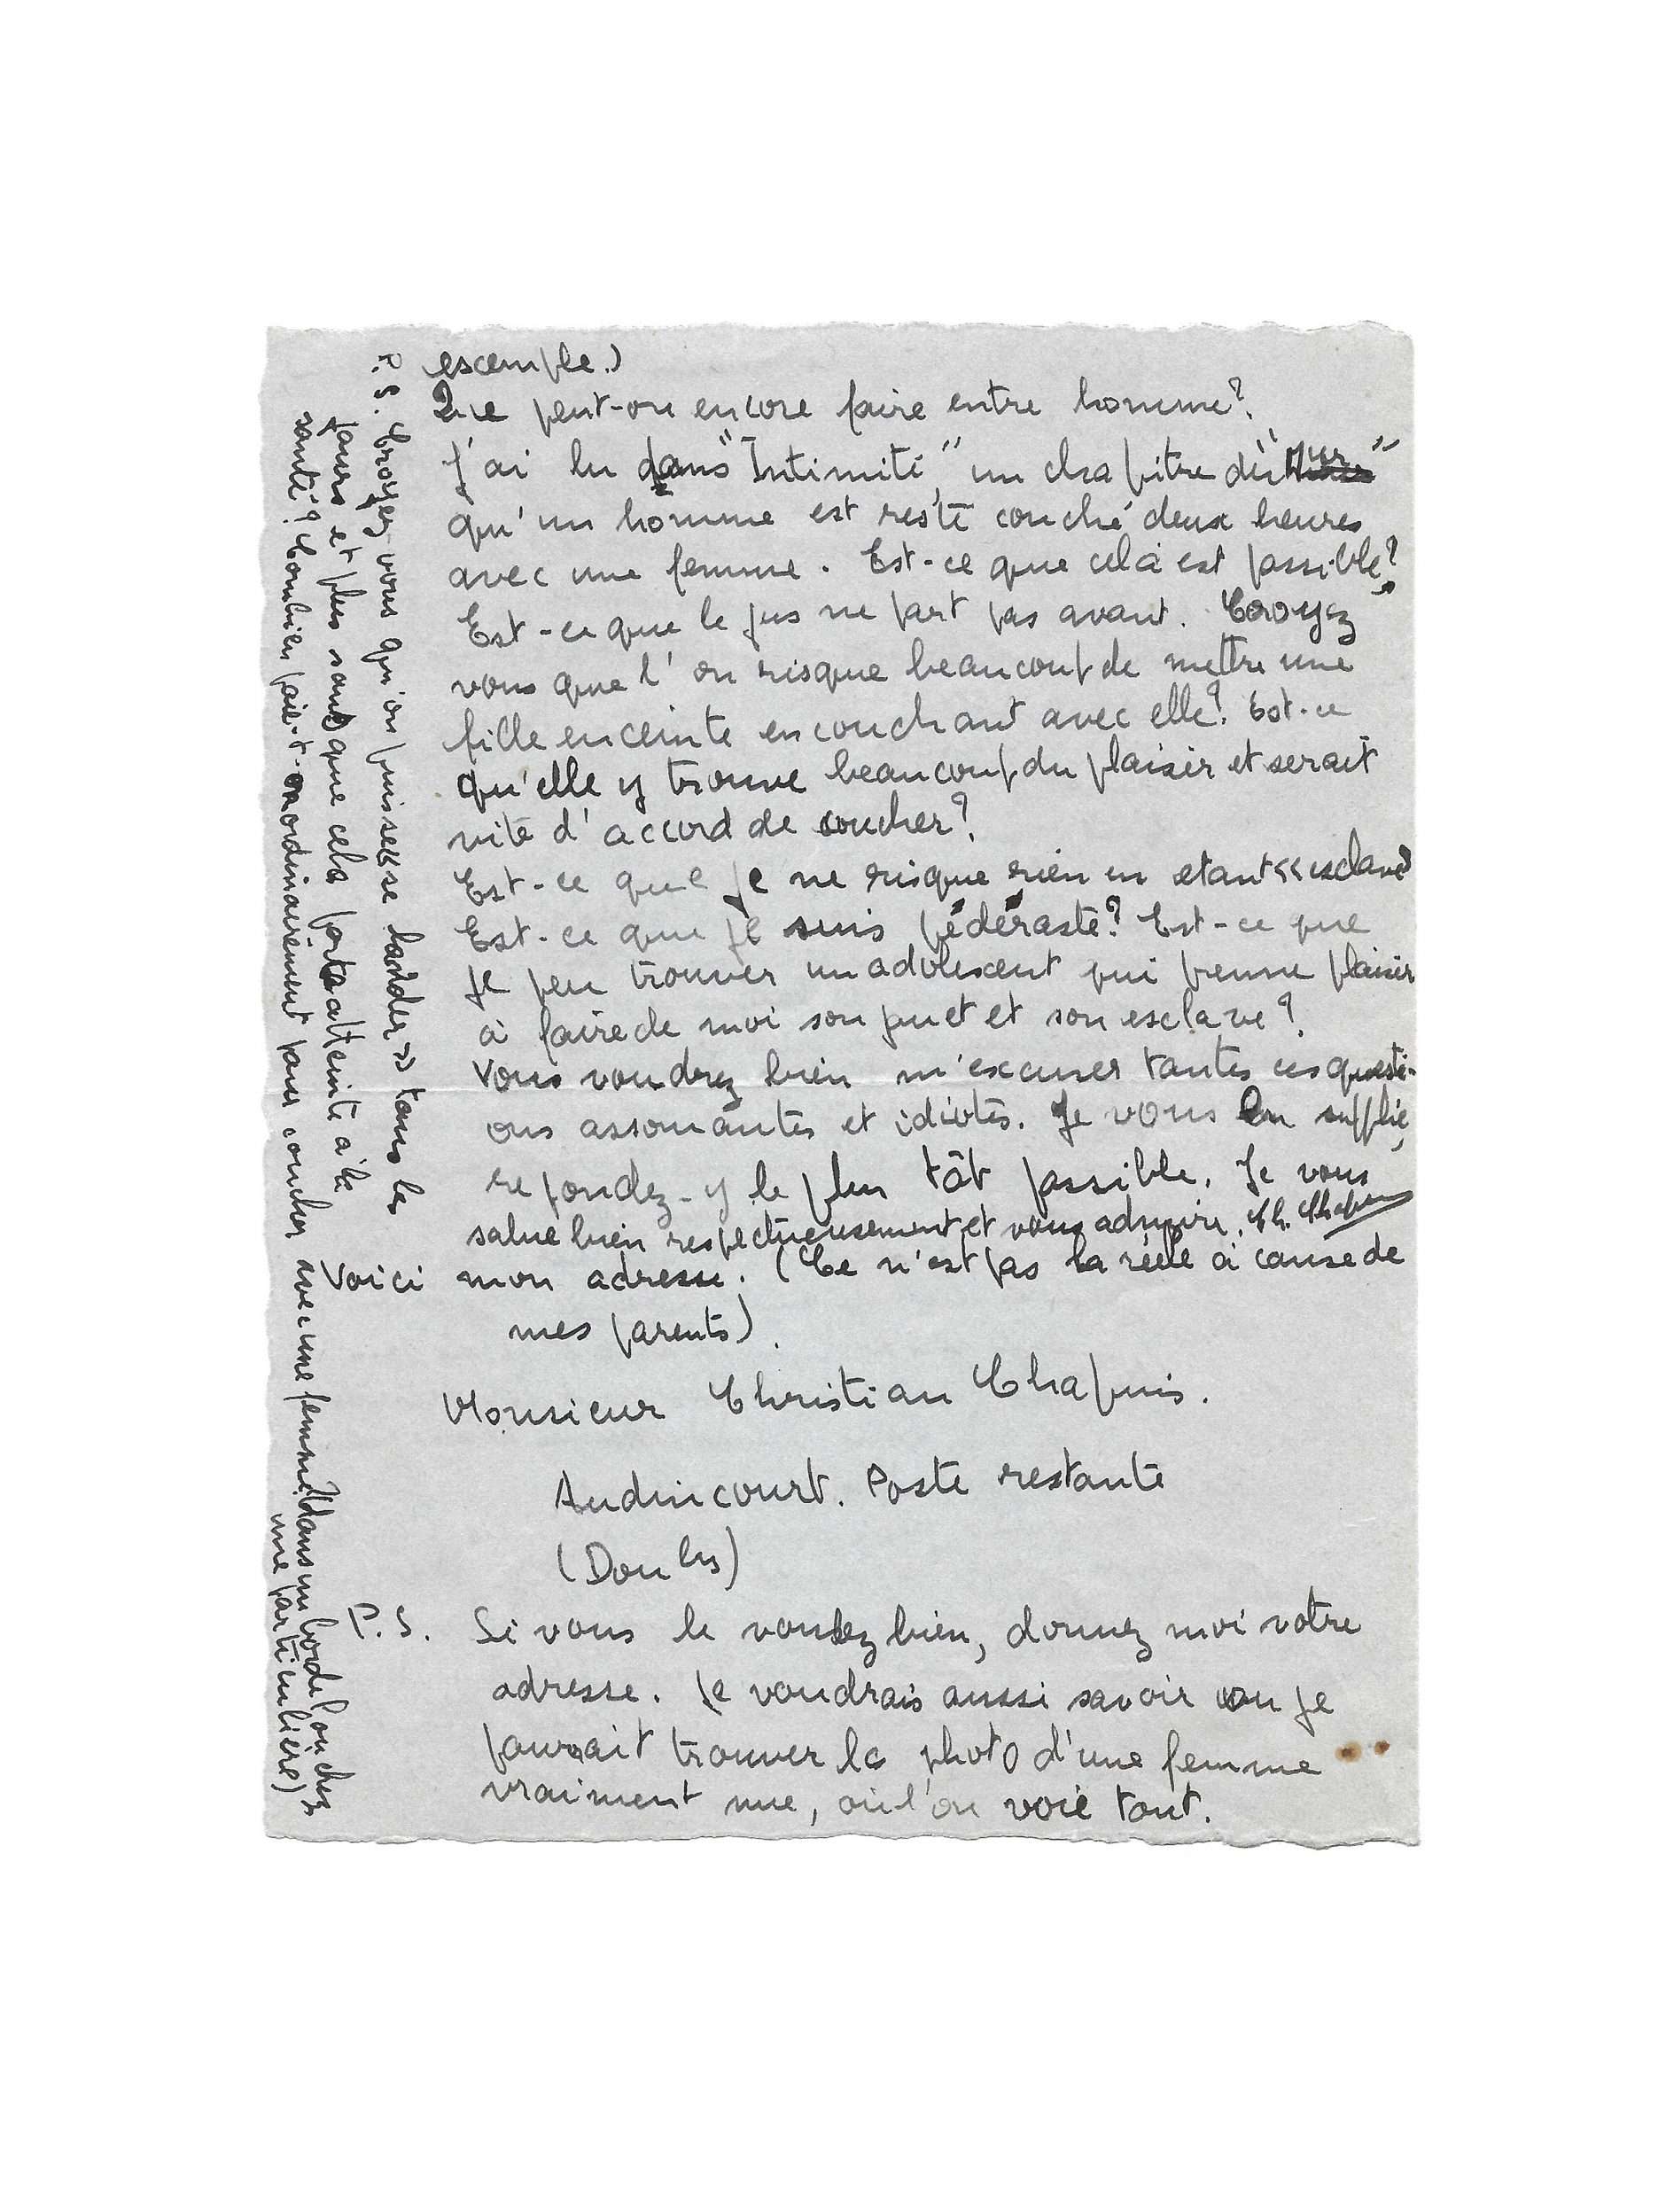 escemple.)
Que peut-on encore faire entre homme?
J'ai lu dans "Intimité," un chapitre du "Mur"
qu'un homme est resté couché deux heures
avec une femme. Est-ce que celà est possible?
Est-ce que le jus ne part pas avant. Croyez
vous que l'on risque beaucoup de mettre une
fille enceinte en couchant avec elle? Est-ce
qu'elle y trouve beaucoup du plaisir et serait
vite d'accord de coucher?
Est-ce que je ne risque rien en etant << esclave>>
Est-ce que je suis pédéraste? Est-ce que
je peu trouver un adolescent qui prenne plaisir
à faire de moi son juet et son esclave?
Vous voudrez bien m'escuser toutes ces questi-
ons assomantes et idiotes. Je vous en supplie,
repondez-y le plus tôt possible. Je vous
salue bien respectueusement et vous admire. Ch. Chapuis
Voici mon adresse. (Ce n'est pas la réele à cause de
mes parents).
Monsieur Christian Chapuis.
Audincourt. Poste restante
(Doubs)
P.S. Si vous le voulez bien, donnez moi votre
adresse. Je voudrais aussi savoir ou je
pourait trouver la photo d'une femme
vraiment nue, où l'on voie tout.
P.S. Croyez-vous qu'on puisse << se >> tous les
jours et plus sans que cela porte atteinte à la
santé? Combien paie-t-on ordinairement pour coucher avec une femme (dans un bordel ou chez
une particulière)